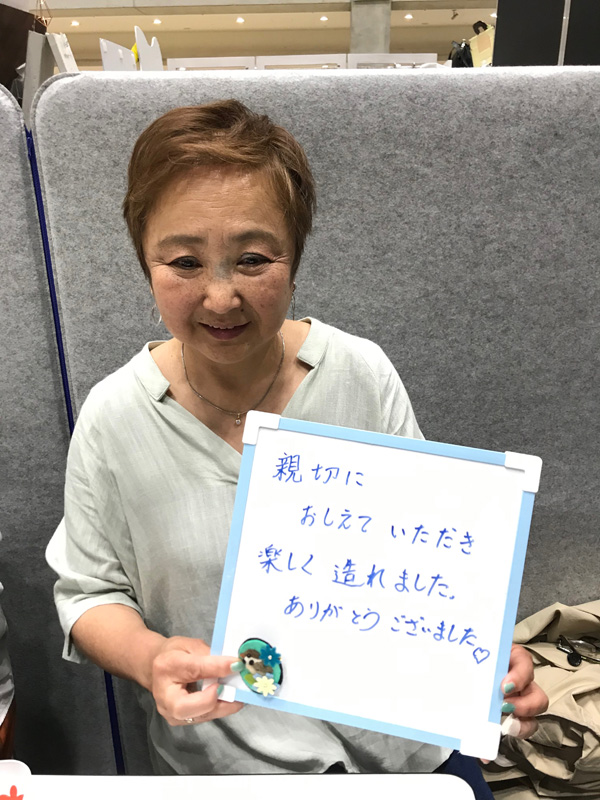 親切に
おしえて いただき
楽しく 造れました。
ありがとう ございました♡